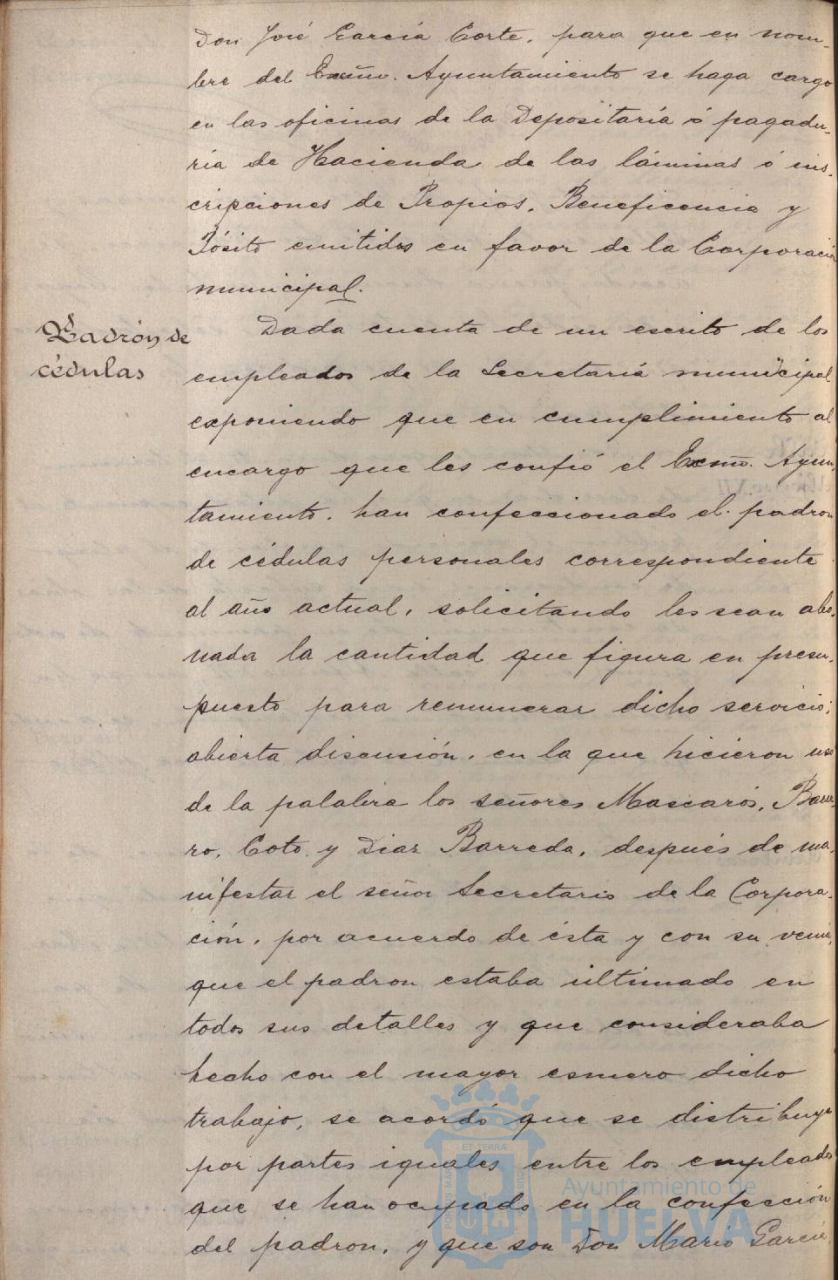 Don José García Corte, para que en nom-
bre del Excmo. Ayuntamiento se haga cargo
en las oficinas de la Depositaría ó pagadu-
ría de Hacienda de las láminas ó ins-
cripciones de Propios, Beneficencia y
Pósito emitidas en favor de la Corporación
municipal.
Padrón de
cédulas
Dada cuenta de un escrito de los
empleados de la Secretaría municipal
exponiendo que en cumplimiento al
encargo que les confió el Excmo. Ayun-
tamiento, han confeccionado el padron
de cédulas personales correspondiente
al año actual, solicitando les sean abo-
nada la cantidad que figura en presu-
puesto para remunerar dicho servicio;
abierta discusión, en la que hicieron uso
de la palabra los señores Mascarós, Barre-
ro, Coto y Diaz Barreda, después de ma-
nifestar el señor Secretario de la Corpora-
ción, por acuerdo de ésta y con su venia,
que el padron estaba ultimado en
todos sus detalles y que consideraba
hecho con el mayor esmero dicho
trabajo, se acordó que se distribuya
por partes iguales entre los empleados
que se han ocupado en la confección
del padron, y que son Don Mario García,
Ayuntamiento de
HUELVA